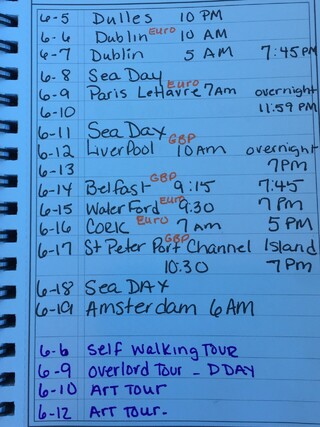 6-5 Dulles 10 PM
6-6 Dublin Euro 10 AM
6-7 Dublin 5 AM 7:45 PM
6-8 Sea Day
6-9 Paris LeHavre Euro 7Am overnight
6-10 11:59 PM
6-11 Sea Day
6-12 Liverpool GBP 10AM overnight
6-13 7PM
6-14 Belfast GBP 9:15 7:45
6-15 WaterFord Euro 9:30 7 PM
6-16 CORK Euro 7 AM 5 PM
6-17 St Peter Port GBP Channel Island
10:30 7 PM
6-18 Sea DAY
6-19 Amsterdam 6 AM
6-6 Self Walking TOUR
6-9 Overlord Tour - DDAY
6-10 ART TOUR
6-12 ART TOUR-